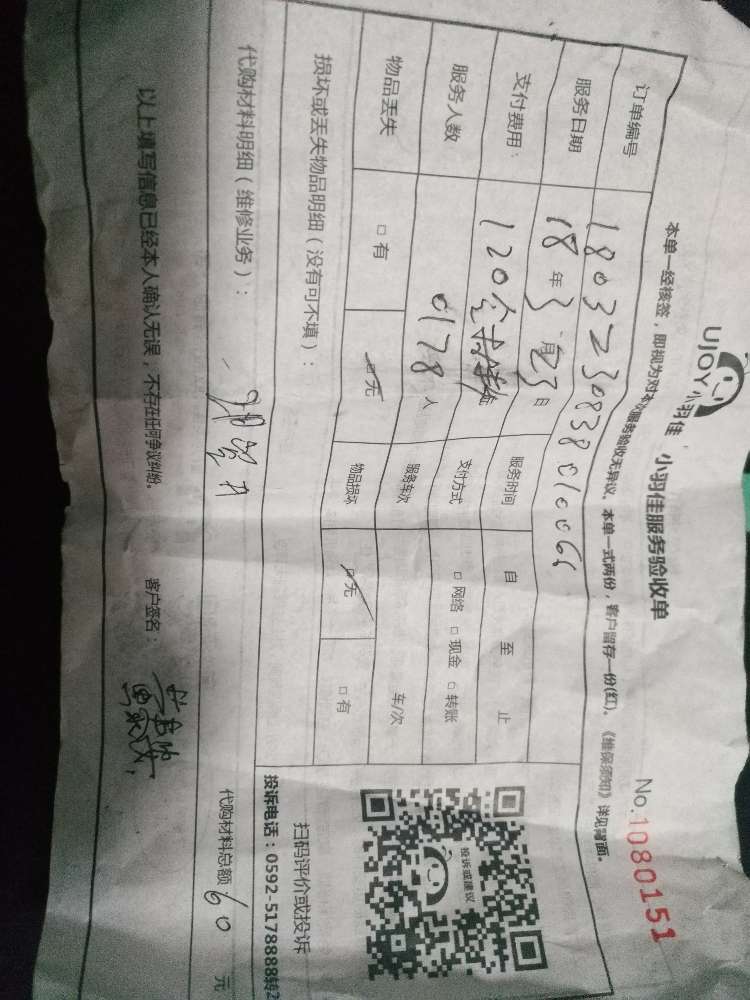 UJOY小羽佳
小羽佳服务验收单
No.1080151
本单一经核签，即视为对本次服务验收无异议。本单一式两份，客户留存一份(红)。《维保须知》详见背面。
订单编号
服务日期 18 年 3 月 23 日 服务时间 自 至 止
支付费用： 120 支付方式 □ 网络 □ 现金 □ 转账
服务人数 人 服务车次 车/次
物品丢失 □ 有 □ 无 物品损坏 □ 无 □ 有
损坏或丢失物品明细（没有可不填）：
投诉或建议
扫码评价或投诉
投诉电话：0592-5178888转2
代购材料明细（维修业务）：
代购材料总额 60 元
以上填写信息已经本人确认无误，不存在任何争议纠纷。 客户签名：